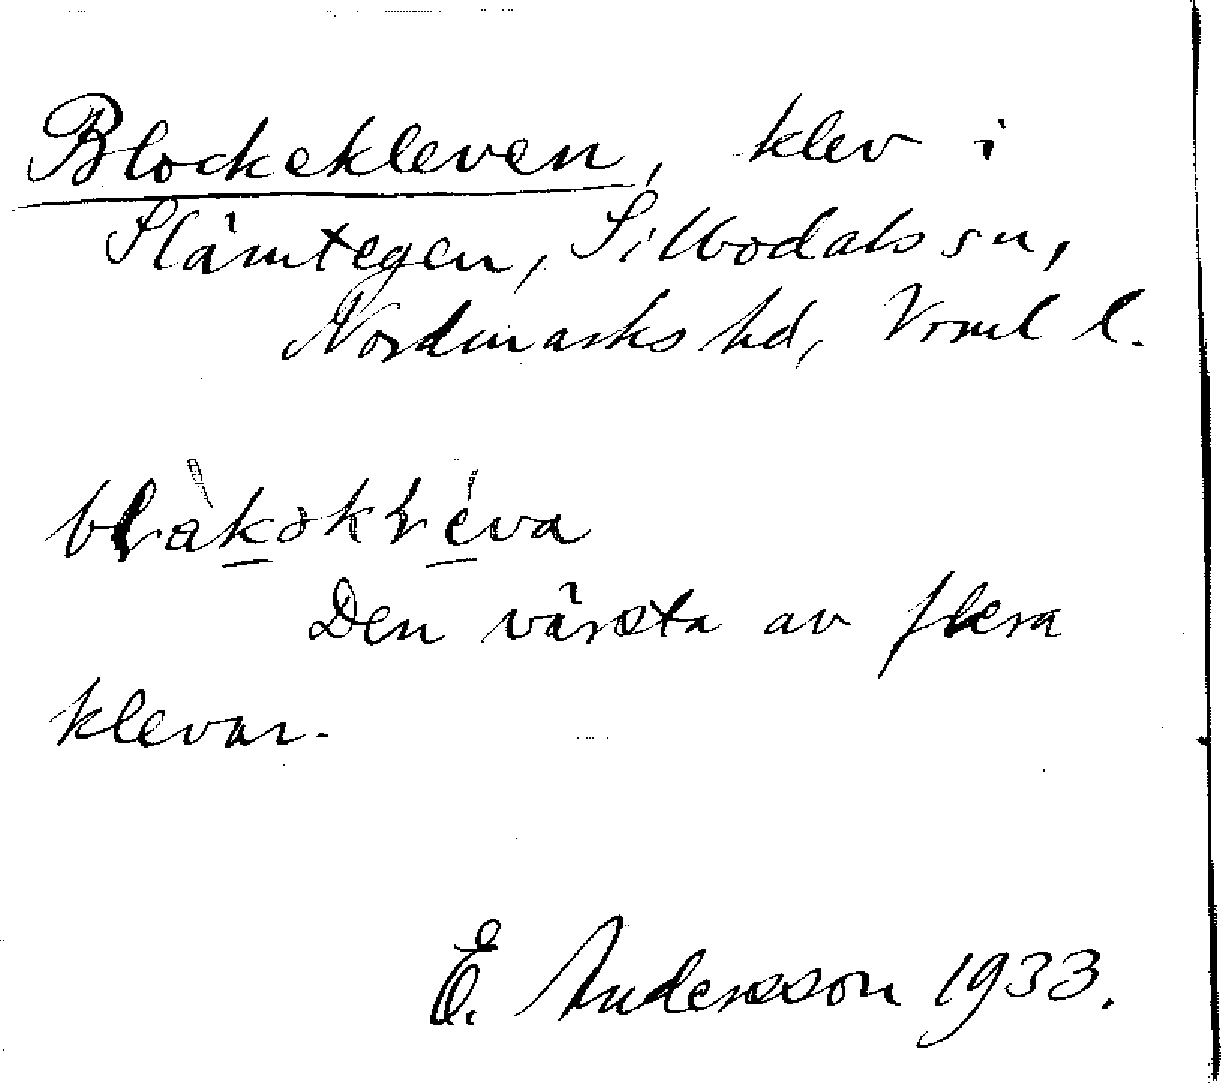 Blockekleven, klev i
Slämtegen, Sillbodals sn,
Nordmarks hd, Vrml l.
blàkəkléva
Den värsta av flera
klevar.
E. Andersson 1933.